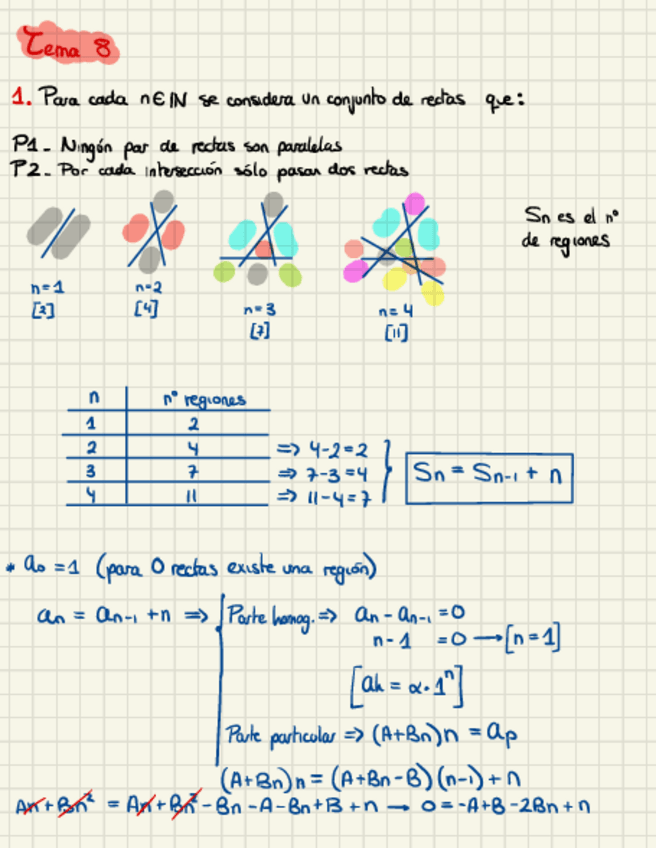 Tema 8
1. Para cada n∈ℕ se considera un conjunto de rectas que:
P1- Ningún par de rectas son paralelas
P2- Por cada intersección sólo pasan dos rectas
Sn es el nº
de regiones
n=1 n=2 n=3 n=4
[2] [4] [7] [11]
n nº regiones
1 2
2 4 => 4-2=2
3 7 => 7-3=4
4 11 => 11-4=7
Sn = Sn-1 + n
* a0 = 1 (para 0 rectas existe una región)
an = an-1 + n => Parte homog. => an - an-1 = 0
n-1 = 0 → [n=1]
[ah = α·1^n]
Parte particular => (A+Bn)n = ap
(A+Bn)n = (A+Bn-B)(n-1)+n
An+Bn² = An+Bn²-Bn-A-Bn+B+n → 0=-A+B-2Bn+n